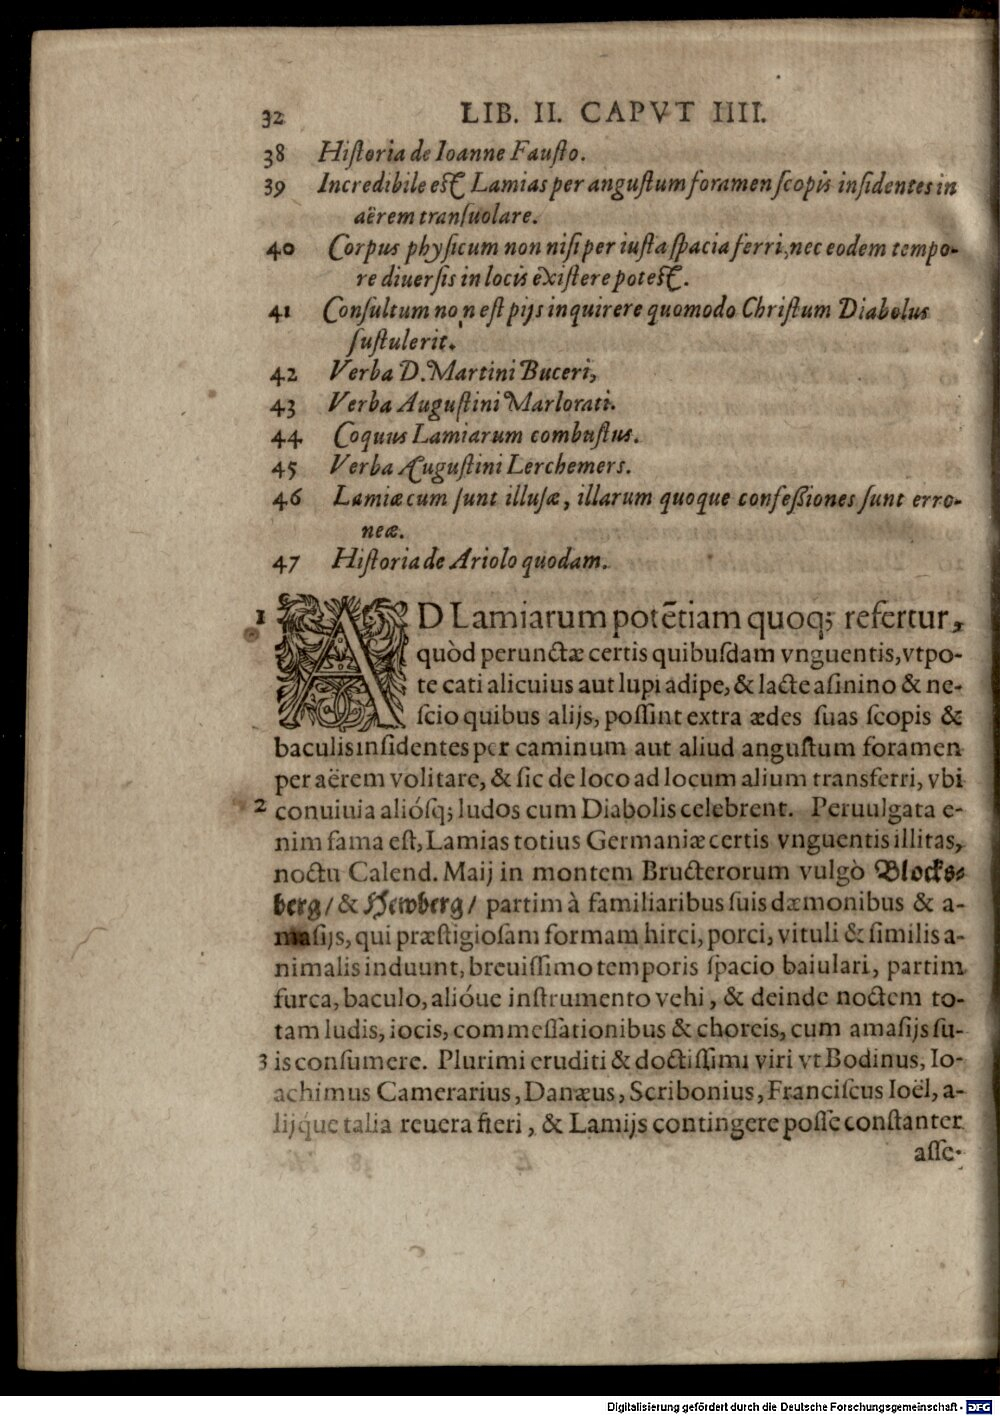 32 LIB. II. CAPVT IIII.
38 Hiſtoria de Ioanne Fauſto.
39 Incredibile eſt Lamias per anguſtum foramen ſcopis inſidentes in
aërem tranſuolare.
40 Corpus phyſicum non niſi per iuſta ſpacia ferri, nec eodem tempo-
re diuerſis in locis exiſtere poteſt.
41 Conſultum non eſt pijs inquirere quomodo Chriſtum Diabolus
ſuſtulerit.
42 Verba D. Martini Buceri,
43 Verba Auguſtini Marlorati.
44 Coquus Lamiarum combuſtus.
45 Verba Auguſtini Lerchemers.
46 Lamiæ cum ſunt illuſæ, illarum quoque confeßiones ſunt erro-
neæ.
47 Hiſtoria de Ariolo quodam.
1 AD Lamiarum potẽtiam quoq; refertur,
quòd perunctæ certis quibuſdam vnguentis, vtpo-
te cati alicuius aut lupi adipe, & lacte aſinino & ne-
ſcio quibus alijs, poſſint extra ædes ſuas ſcopis &
baculis inſidentes per caminum aut aliud anguſtum foramen
per aërem volitare, & ſic de loco ad locum alium transferri, vbi
2 conuiuia alióſq; ludos cum Diabolis celebrent. Peruulgata e-
nim fama eſt, Lamias totius Germaniæ certis vnguentis illitas,
noctu Calend. Maij in montem Bructerorum vulgò Blocks-
berg/ & Hewberg/ partim à familiaribus ſuis dæmonibus & a-
maſijs, qui præſtigioſam formam hirci, porci, vituli & ſimilis a-
nimalis induunt, breuiſſimo temporis ſpacio baiulari, partim
furca, baculo, alióue inſtrumento vehi, & deinde noctem to-
tam ludis, iocis, commeſſationibus & choreis, cum amaſijs ſu-
3 is conſumere. Plurimi eruditi & doctiſſimi viri vt Bodinus, Io-
achimus Camerarius, Danæus, Scribonius, Franciſcus Ioël, a-
lijque talia reuera fieri, & Lamijs contingere poſſe conſtanter
aſſe-
Digitalisierung gefördert durch die Deutsche Forschungsgemeinschaft - DFG